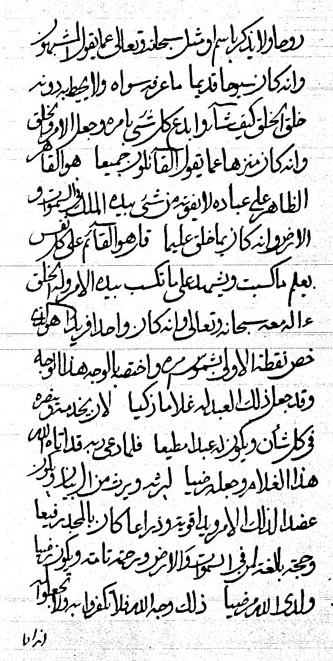 روحا ولا يذكر باسم او مثل سبحانه وتعالى عما يقول المشبهون
وانه كان سبوحا قديما ما عرفه سواه ولا يحيط به دونه
خلق الخلق كيف شآء وابدع كل شئ بامره وجعل الامر والخلق
وانه كان منزها عما يقول القآئلون جميعا هو القاهر
الظاهر على عباده لا يفوته من شئ بيده الملك في السموات و
الارض وانه كان بما خلق عليما قل هو القآئم على كل نفس
يعلم ما كسبت ويشهد على ما تكسب بيده الامر والخلق
ءاله معه سبحانه وتعالى وانه كان واحدا فريدا هو الذي
خص نقطة الاولى واختصها بالوجه هذا الوجه
وقد جعل ذلك العبد له غلاما زكيا لان يخدمه وينصره
في كل شأن ويكون له عبدا مطيعا فلما دعى ربه قد اتاه الله
هذا الغلام وجعله رضيا ليرثه ويرث من البيان ويكون
عضدا لذلك الامر ويدا قوية وذراعا كان بالمجد رفيعا
وحجة بالغة لمن في السموات والارض ورحمة تامة ويكون رضيا
ولدى الله مرضيا ذلك وجه الله فلا تكفروا به ولا تجعلوا له